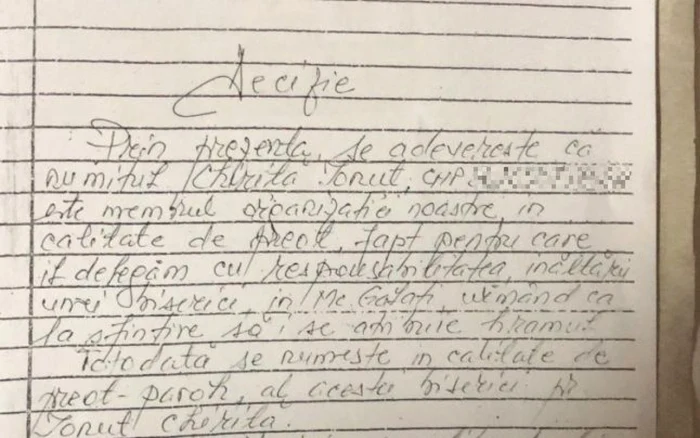 Decizie
Prin prezenta, se adevereste că
numitul Chirita Ionut, CNP
este membrul organizației noastre, în
calitate de preot, fapt pentru care
îl delegăm cu responsabilitatea, înălțării
unei biserici, în Mc. Galați, urmând ca
la sfințire să i se atribuie hramul.
Totodată se numeste în calitate de
preot-paroh, al acestei biserici pr
Ionut Chirita.